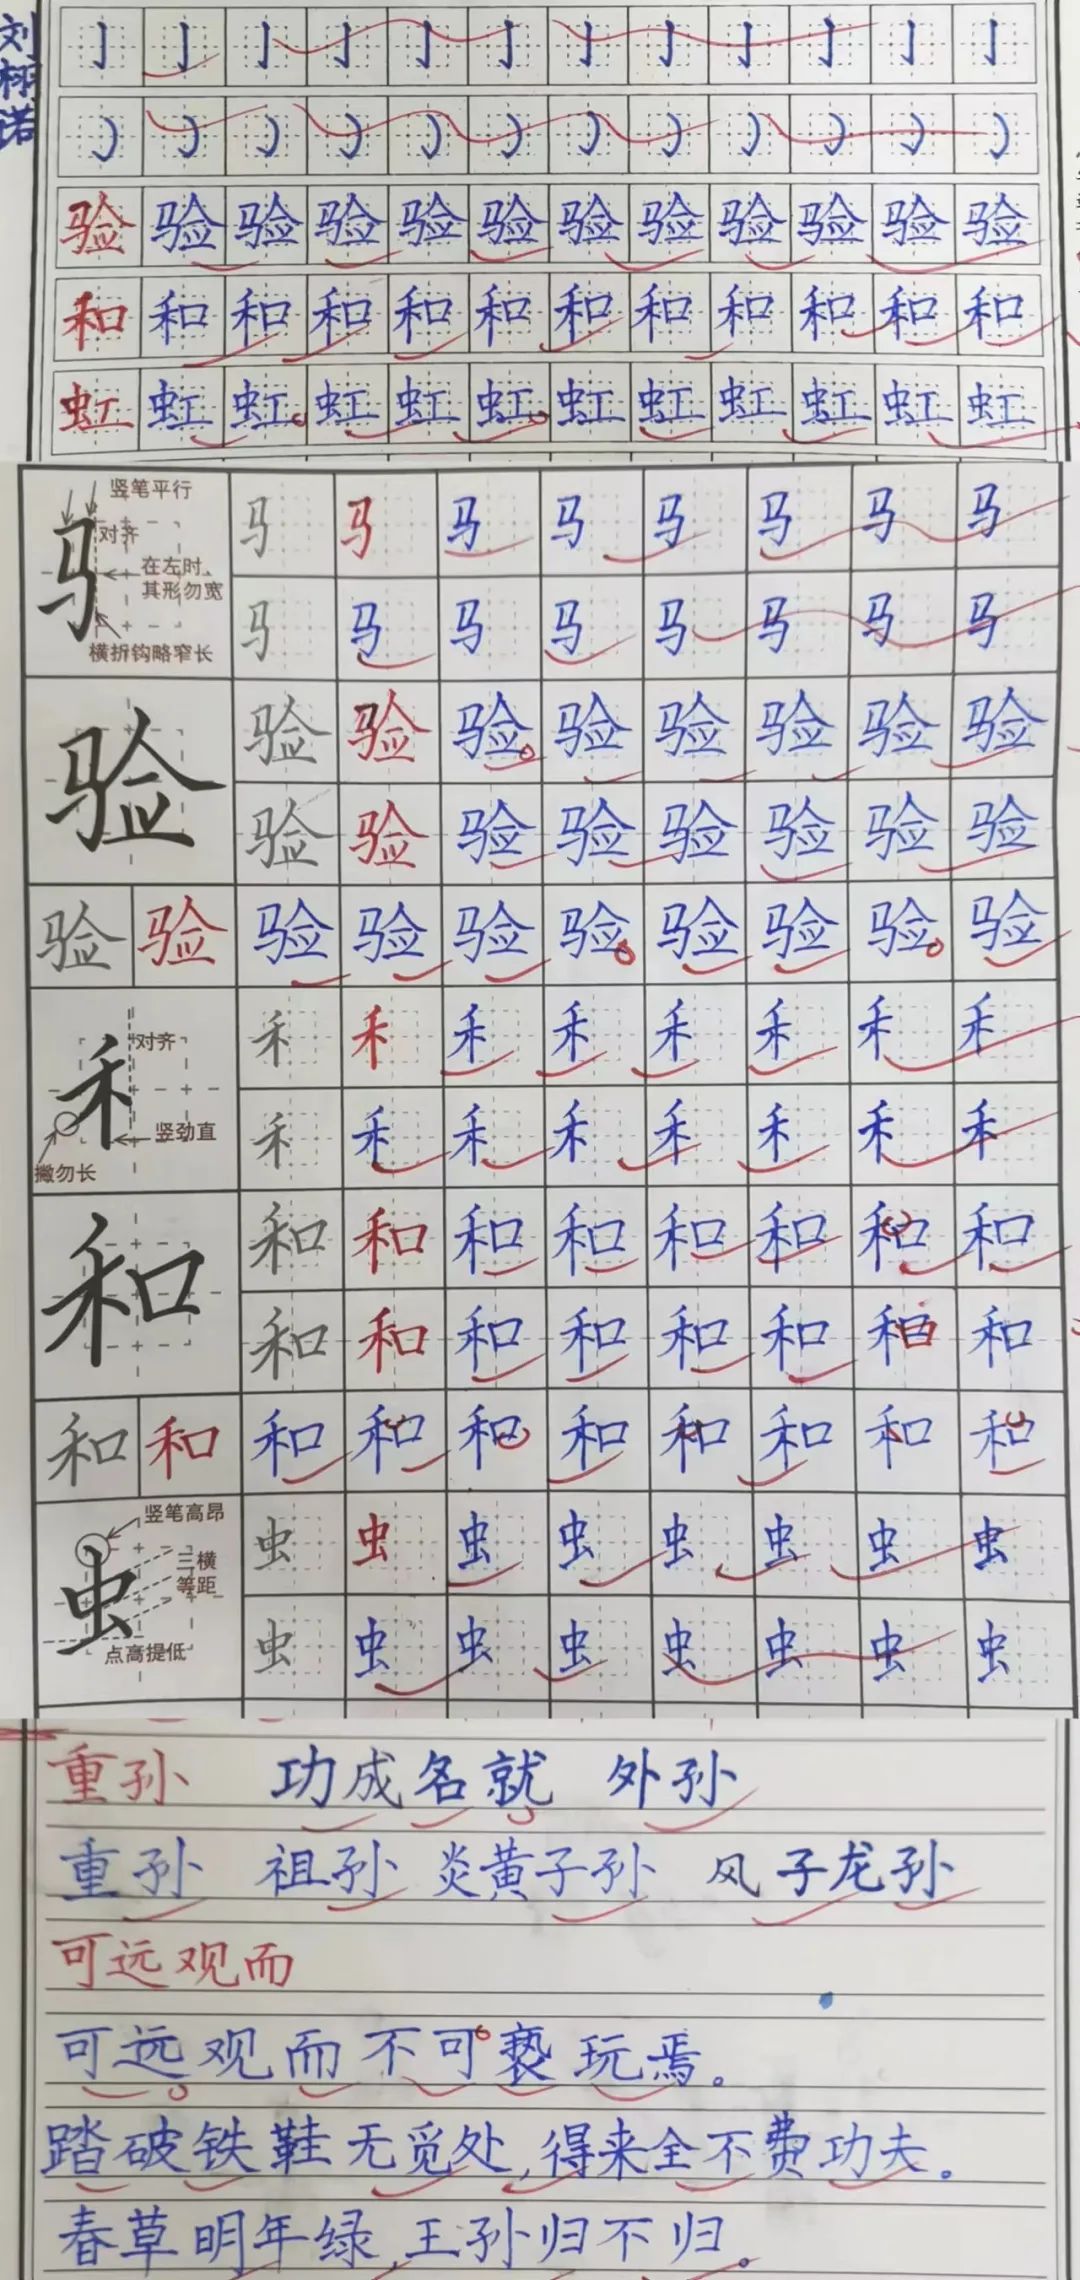 刘栩诺
验验验验验验验验验验验验
和和和和和和和和和和和和
虹虹虹虹虹虹虹虹虹虹虹虹
竖笔平行
对齐
在左时、
其形勿宽
横折钩略窄长
马
马马马马马马马马
马马马马马马马马
验
验验验验验验验验
验验验验验验验验
验验验验验验验验验验
对齐
竖劲直
撇勿长
禾
禾禾禾禾禾禾禾禾
禾禾禾禾禾禾禾禾
和
和和和和和和和和
和和和和和和和和
和和和和和和和和和和
竖笔高昂
三横
等距
点高提低
虫
虫虫虫虫虫虫虫虫
虫虫虫虫虫虫虫虫
重孙 功成名就 外孙
重孙 祖孙 炎黄子孙 风子龙孙
可远观而
可远观而不可亵玩焉。
踏破铁鞋无觅处,得来全不费功夫。
春草明年绿,王孙归不归。